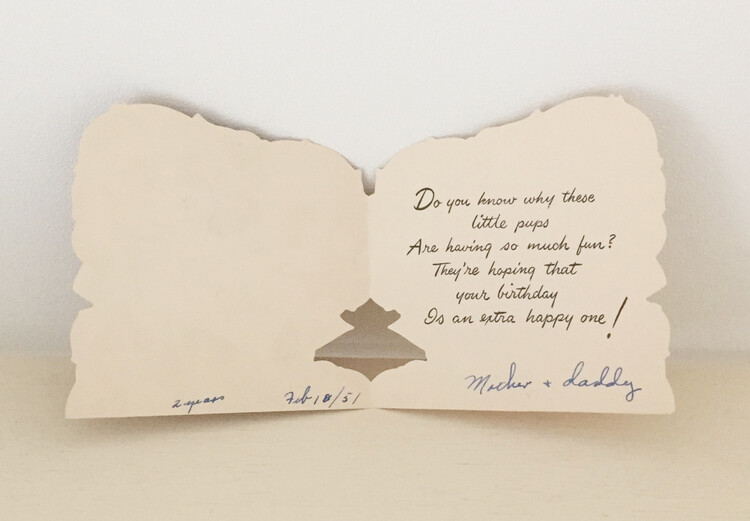 Do you know why these
little pups
Are having so much fun?
They're hoping that
your birthday
Is an extra happy one!
Mother + daddy
2 years Feb 18/51